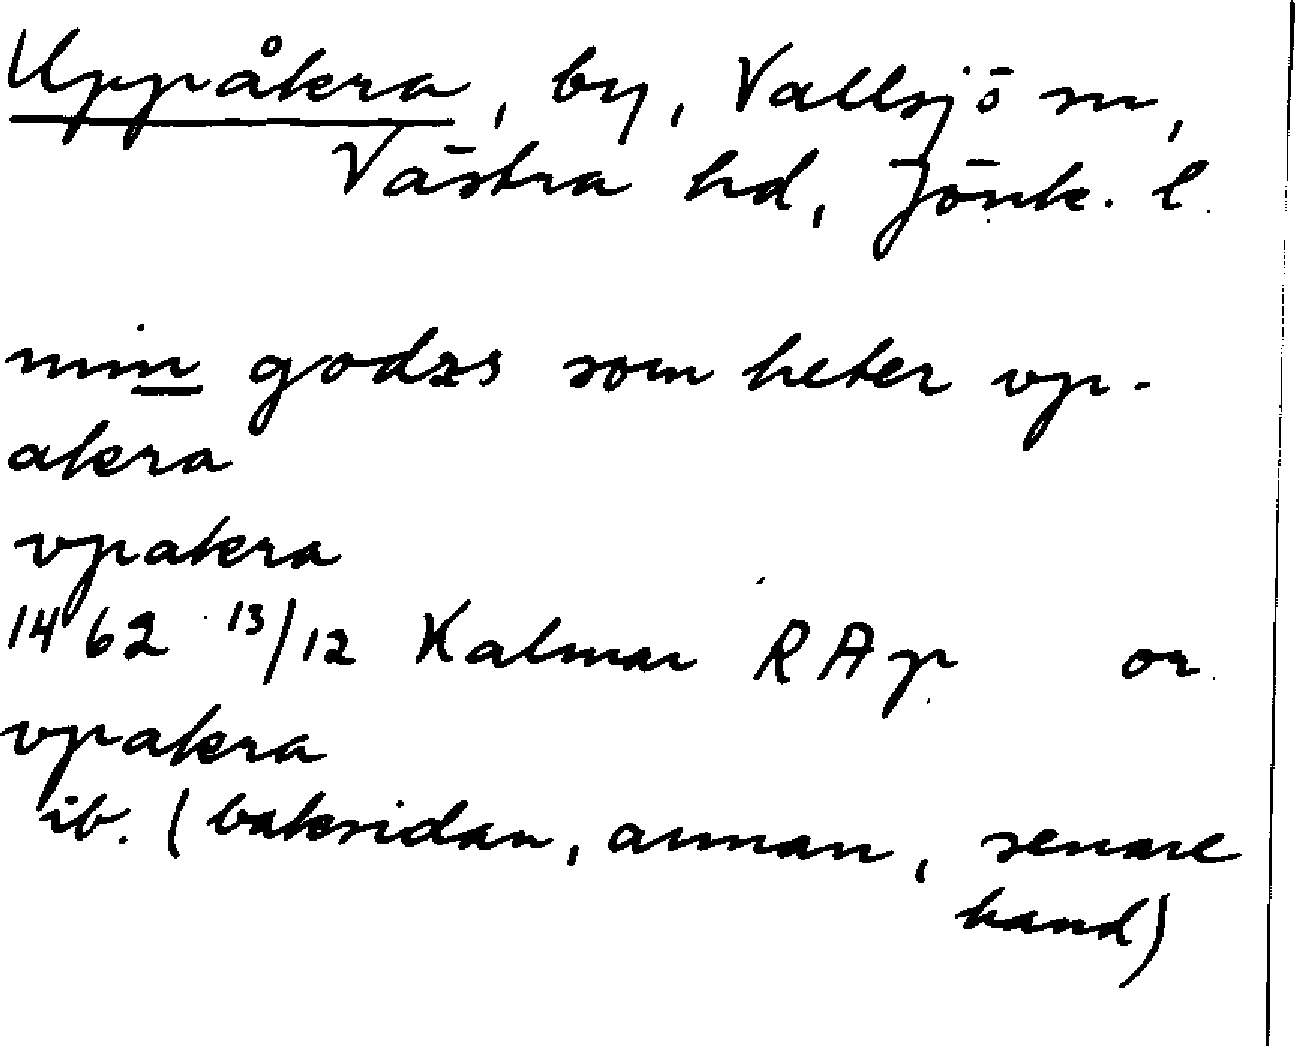 Uppåkra, by, Vallsjö sn,
Västra hd, Jönk. l.
min godzs som heter vp-
akra
vpakra
1462 13/12 Kalmar RAp or.
vpakra
ib. (baksidan, annan, senare
hand)